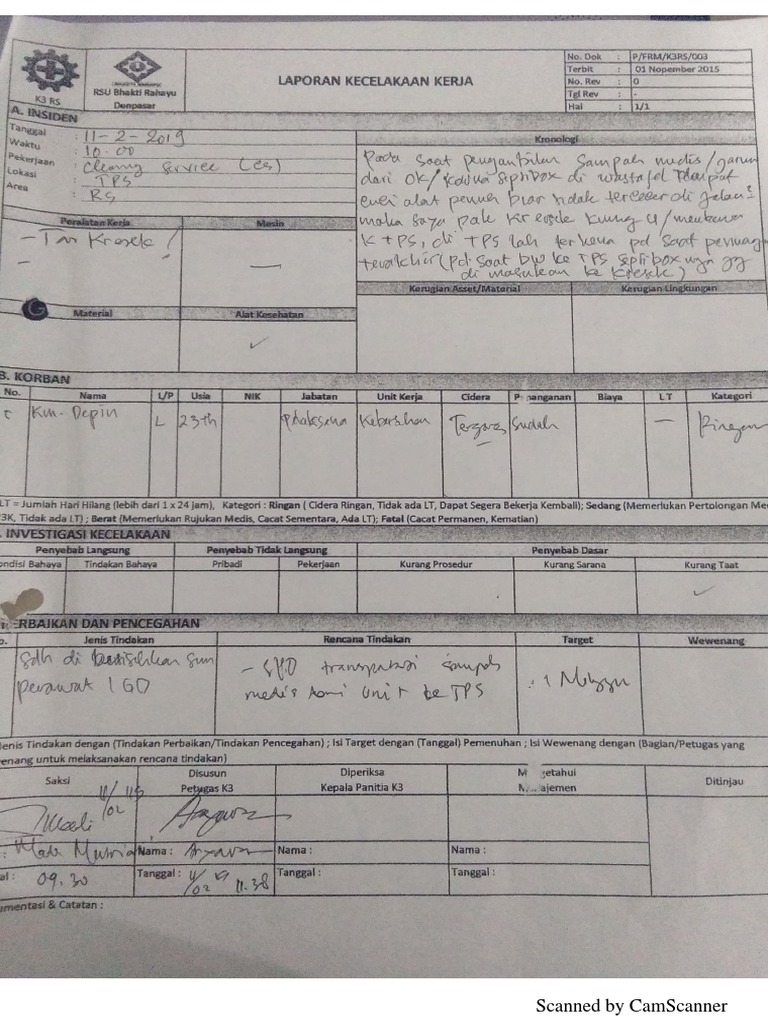 K3 RS
RSU Bhakti Rahayu
Denpasar
LAPORAN KECELAKAAN KERJA
No. Dok : P/FRM/K3RS/003
Terbit : 01 Nopember 2015
No. Rev : 0
Tgl Rev : -
Hal : 1/1
A. INSIDEN
Tanggal : 11-2-2019
Waktu : 10.00
Pekerjaan : Cleaning Service (CS)
Lokasi : TPS
Area : RS
Kronologi
Pada saat pengambilan Sampah medis /
dari OK/ Karena Septibox di wastafel
alat penuh biar tidak tercecer di
maka saya pak kresek kuning u/
K TPS, di TPS lah terkena pd saat
terakhir (pd saat ke TPS septibox nya
di masukan ke kresek)
Peralatan Kerja Mesin
- Kresek !
-
Material Alat Kesehatan
✓
Kerugian Asset/Material Kerugian Lingkungan
B. KORBAN
No. Nama L/P Usia NIK Jabatan Unit Kerja Cidera Penanganan Biaya LT Kategori
Depin L 23th Kebersihan Sudah - Ringan
LT = Jumlah Hari Hilang (lebih dari 1 x 24 jam), Kategori : Ringan ( Cidera Ringan, Tidak ada LT, Dapat Segera Bekerja Kembali); Sedang (Memerlukan Pertolongan
P3K, Tidak ada LT) ; Berat (Memerlukan Rujukan Medis, Cacat Sementara, Ada LT); Fatal (Cacat Permanen, Kematian)
INVESTIGASI KECELAKAAN
Penyebab Langsung Penyebab Tidak Langsung Penyebab Dasar
ondisi Bahaya Tindakan Bahaya Pribadi Pekerjaan Kurang Prosedur Kurang Sarana Kurang Taat
✓
ERBAIKAN DAN PENCEGAHAN
Jenis Tindakan Rencana Tindakan Target Wewenang
Sdh di bersihkan
perawat IGD
- SPO transportasi sampah
medis dari unit ke TPS
: 1 Minggu
Jenis Tindakan dengan (Tindakan Perbaikan/Tindakan Pencegahan) ; Isi Target dengan (Tanggal) Pemenuhan ; Isi Wewenang dengan (Bagian/Petugas yang
enang untuk melaksanakan rencana tindakan)
Saksi Disusun Diperiksa Mengetahui Ditinjau
Petugas K3 Kepala Panitia K3 Manajemen
11/02
Nama : Nama : Nama :
al : 09.30 Tanggal : 11/02 11.38 Tanggal : Tanggal :
umentasi & Catatan :
Scanned by CamScanner